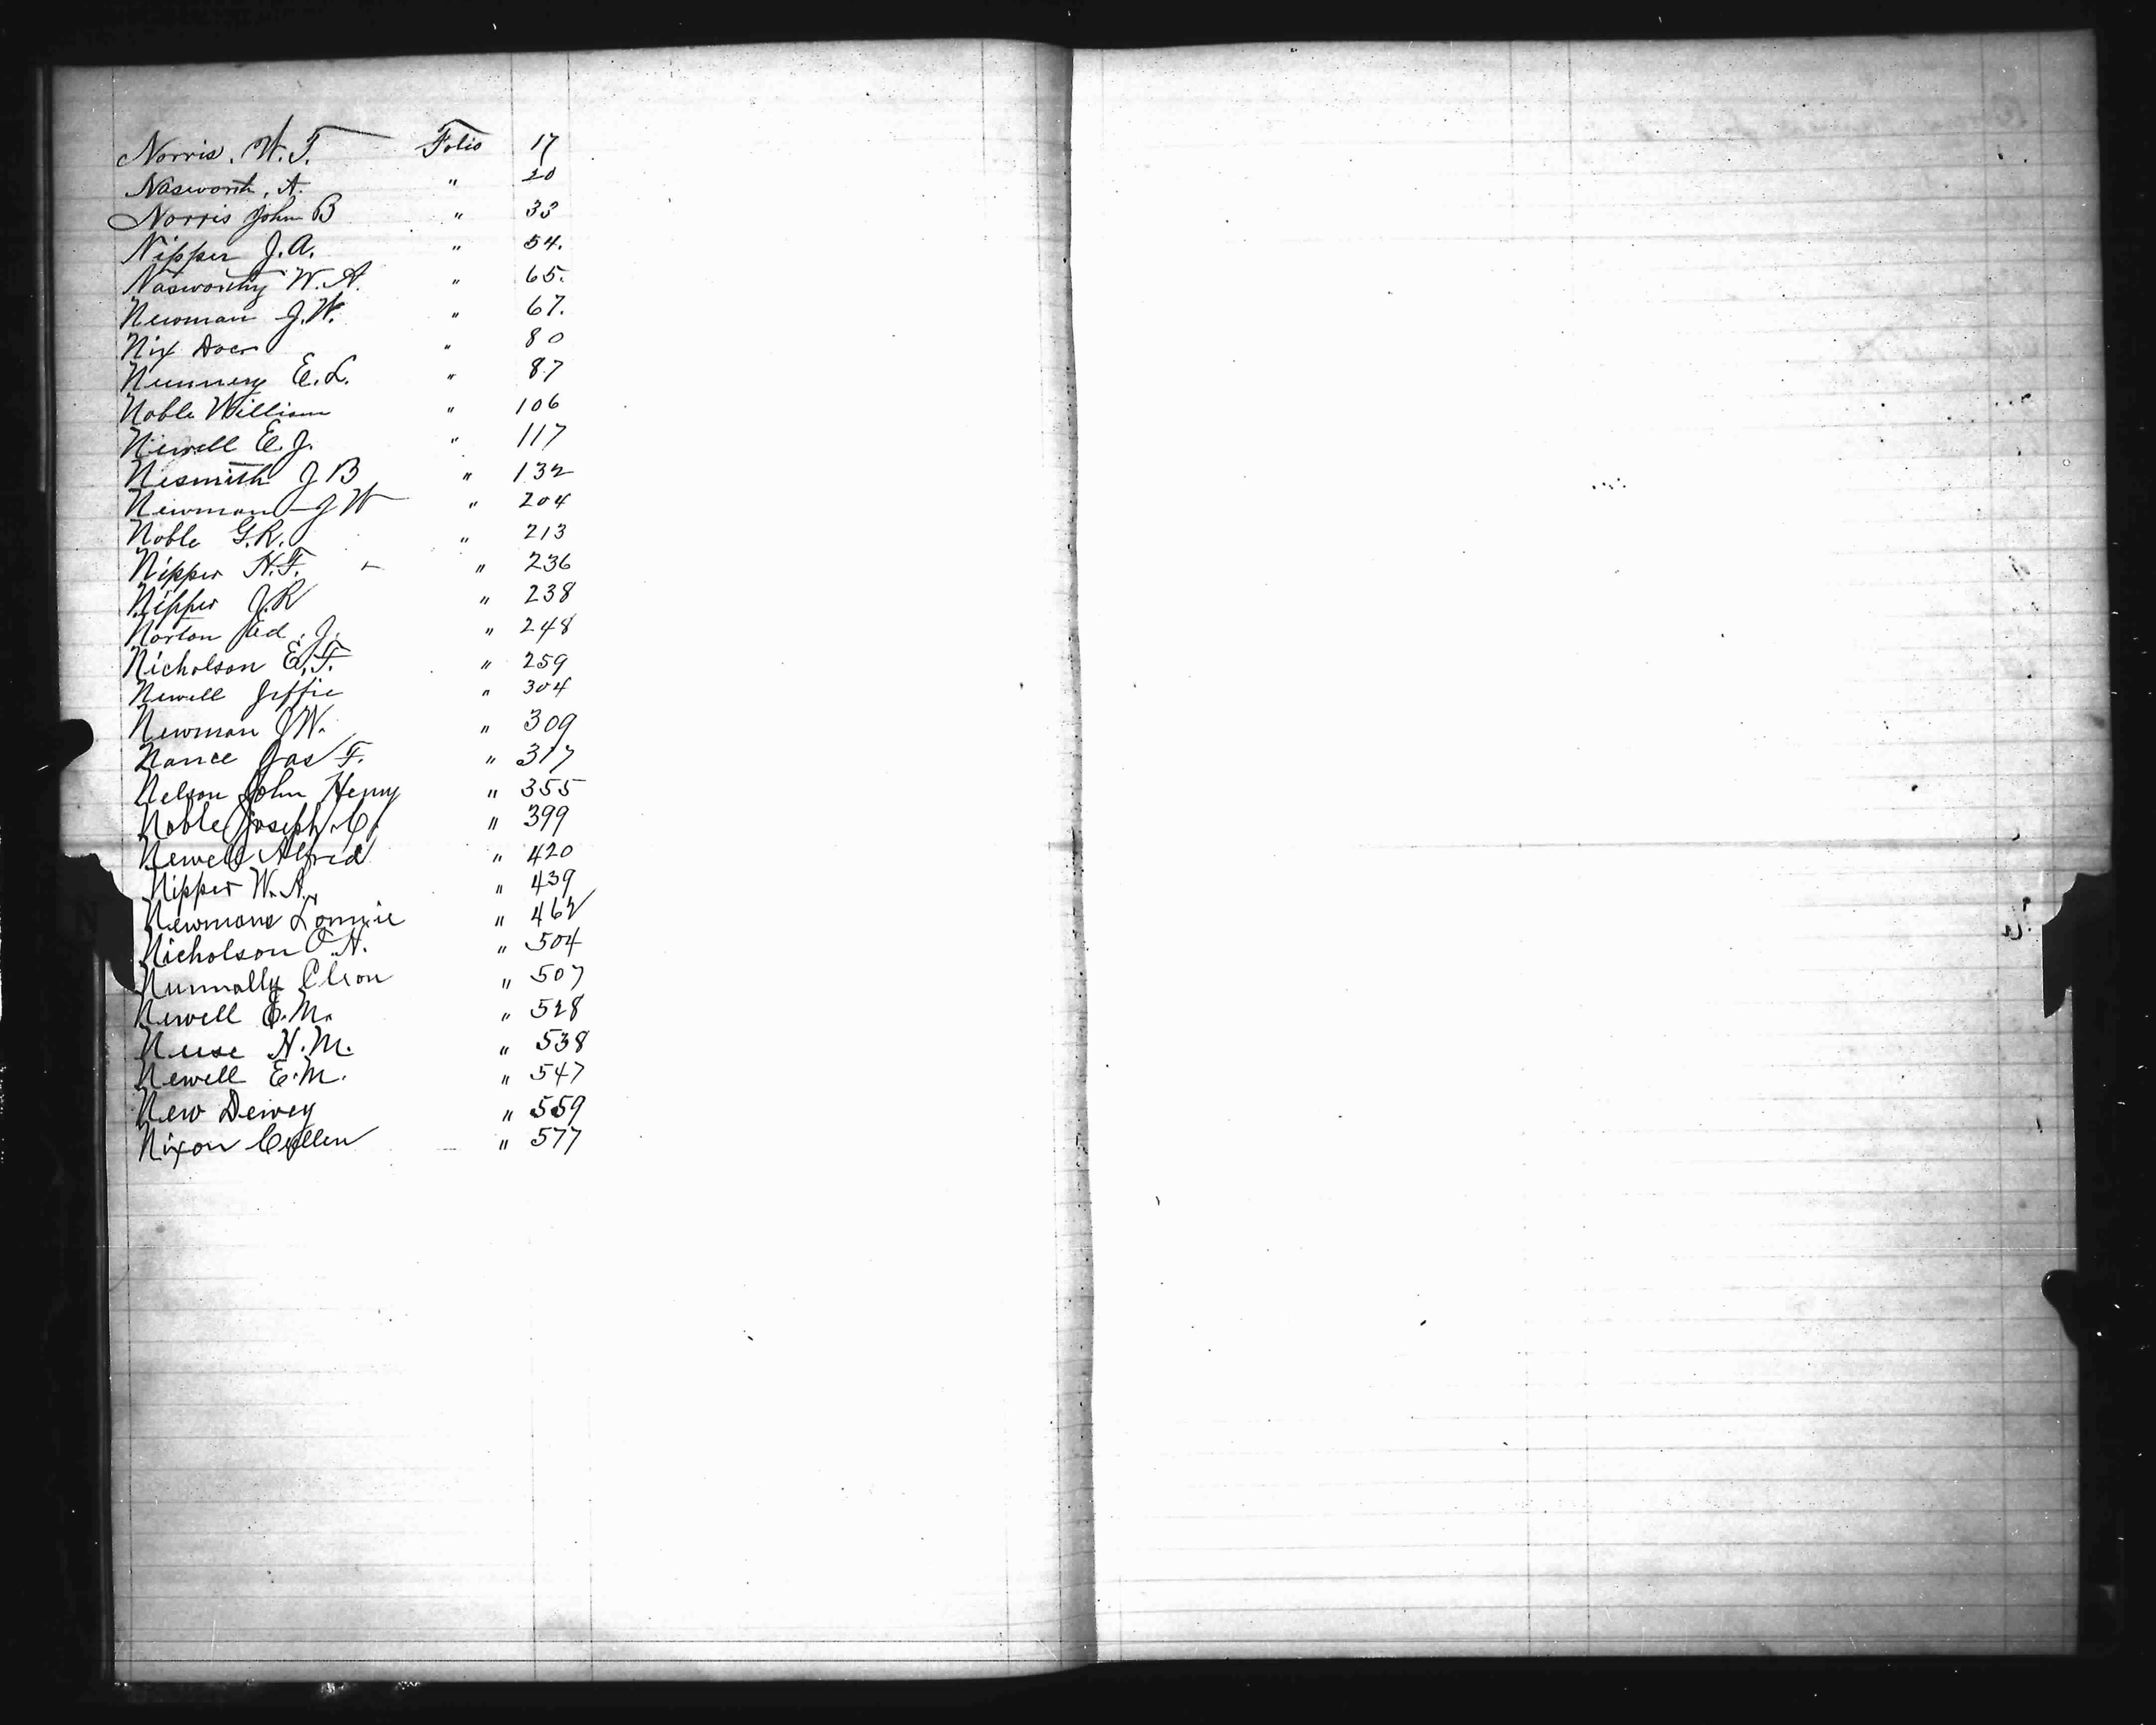 Norris, W. T. Folio 17
Nasworth, A. " 20
Norris John B " 33
Nipper J. A. " 54.
Nasworthy W. A. " 65.
Newman J. W. " 67.
Nix " 80
Nunnery E. L. " 87
Noble William " 106
Newell E. J. " 117
Nesmith J B " 132
Newman J W " 204
Noble G. R. " 213
Nipper H. F. " 236
Nipper J. R " 238
Norton Ed. J. " 248
Nicholson E. F. " 259
Newell Jeffie " 304
Newman J W. " 309
Nance Jas F. " 317
Nelson John Henry " 355
Noble Joseph C " 399
Newell Alfred " 420
Nipper W. A. " 439
Newmans Lonnie " 462
Nicholson O. H. " 504
Nunnally Cleon " 507
Newell E. M. " 528
Neese H. M. " 538
Newell E. M. " 547
New Dewey " 559
Nixon Cullen " 577